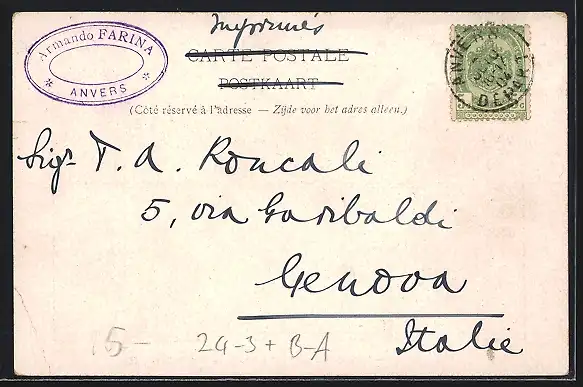 Imprimés
Armando FARINA
* ANVERS *
CARTE POSTALE
POSTKAART
(Côté réservé à l'adresse — Zijde voor het adres alleen.)
ANVERS
DEPART
Sigr T. A. Roncali
5, via Garibaldi
Genova
Italie
5- 24-3 + B-A